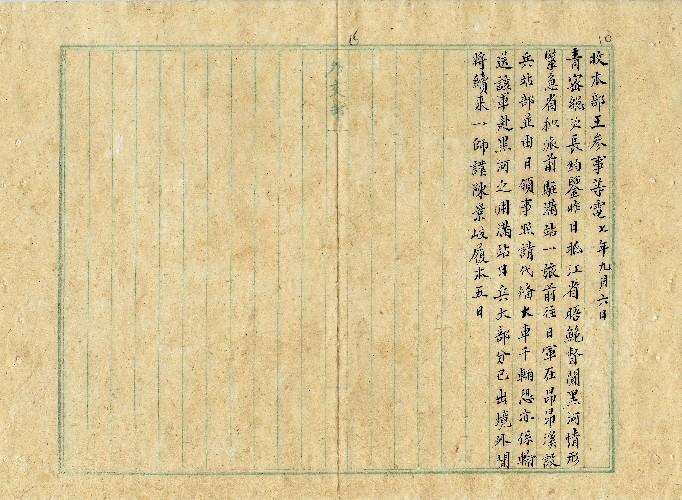 收本部王參事等電七年九月六日
青密總次長鈞鑒昨日抵江省晤鮑督聞黑河情形
緊急省和派前駐滿站一旅前往日軍在昂昂溪設
兵站部並由日領事照請代備大車千輛恐亦係輸
送該軍赴黑河之用滿站日兵大部分已出境外聞
將續來一師謹陳景岐履本五日
外交部